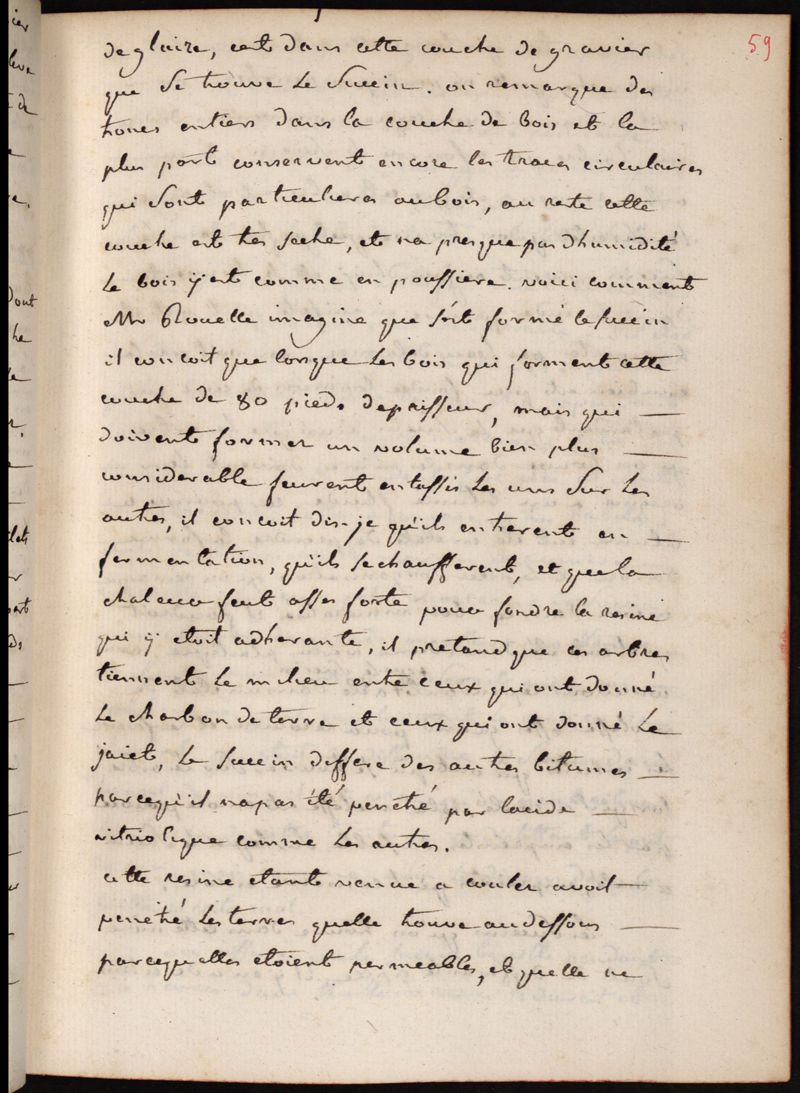 59
de glaire, cest dans cette couche de gravier
que se trouve Le Succin. on remarque des
troncs entiers dans la couche de bois et la
plus part conservent encore les traces circulaires
qui sont particulieres aubois, au reste cette
couche est tres seche, et na presque pas dhumidité
Le bois y est comme en poussiere. voici comment
Mr Rouelle imagine que sest formé le succin
il concoit que lorsque Les bois qui forment cette
couche de 80 pieds depaisseur, mais qui —
doivent former un volume bien plus —
considerable feurent entassés Les uns sur Les
autres, il concoit dis-je qu'ils entrerent en —
fermentation, qu'ils sechaufferent, et que la
chaleur feut asses forte pour fondre la resine
qui y etoit adherante, il pretend que ces arbres
tiennent Le milieu entre ceux qui ont donné
Le charbon de terre et ceux qui ont donné Le
jaiet, Le Succin differe des autres bitumes —
parcequ'il napas été penetré par lacide —
vitriolique comme Les autres.
cette resine etante venue a couler avoit —
penetré Les terres quelle trouve audessous —
parcequelles etoient permeables, et quelle ne